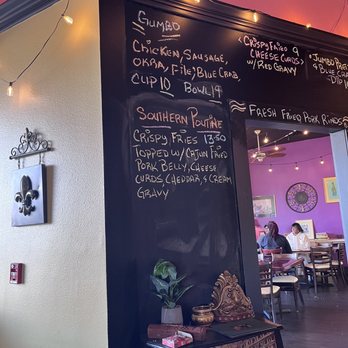 Gumbo
Chicken, Sausage,
Okra, File, Blue Crab,
Cup 10 Bowl 19
Southern Poutine
Crispy Fries 13.50
Topped w/ Cajun Fried
Pork Belly, Cheese
Curds Cheddar, & Cream
Gravy
Crispy Fried 9
Cheese Curds
w/ Red Gravy
Jumbo
& Blue
Dip
Fresh Fried Pork Rinds